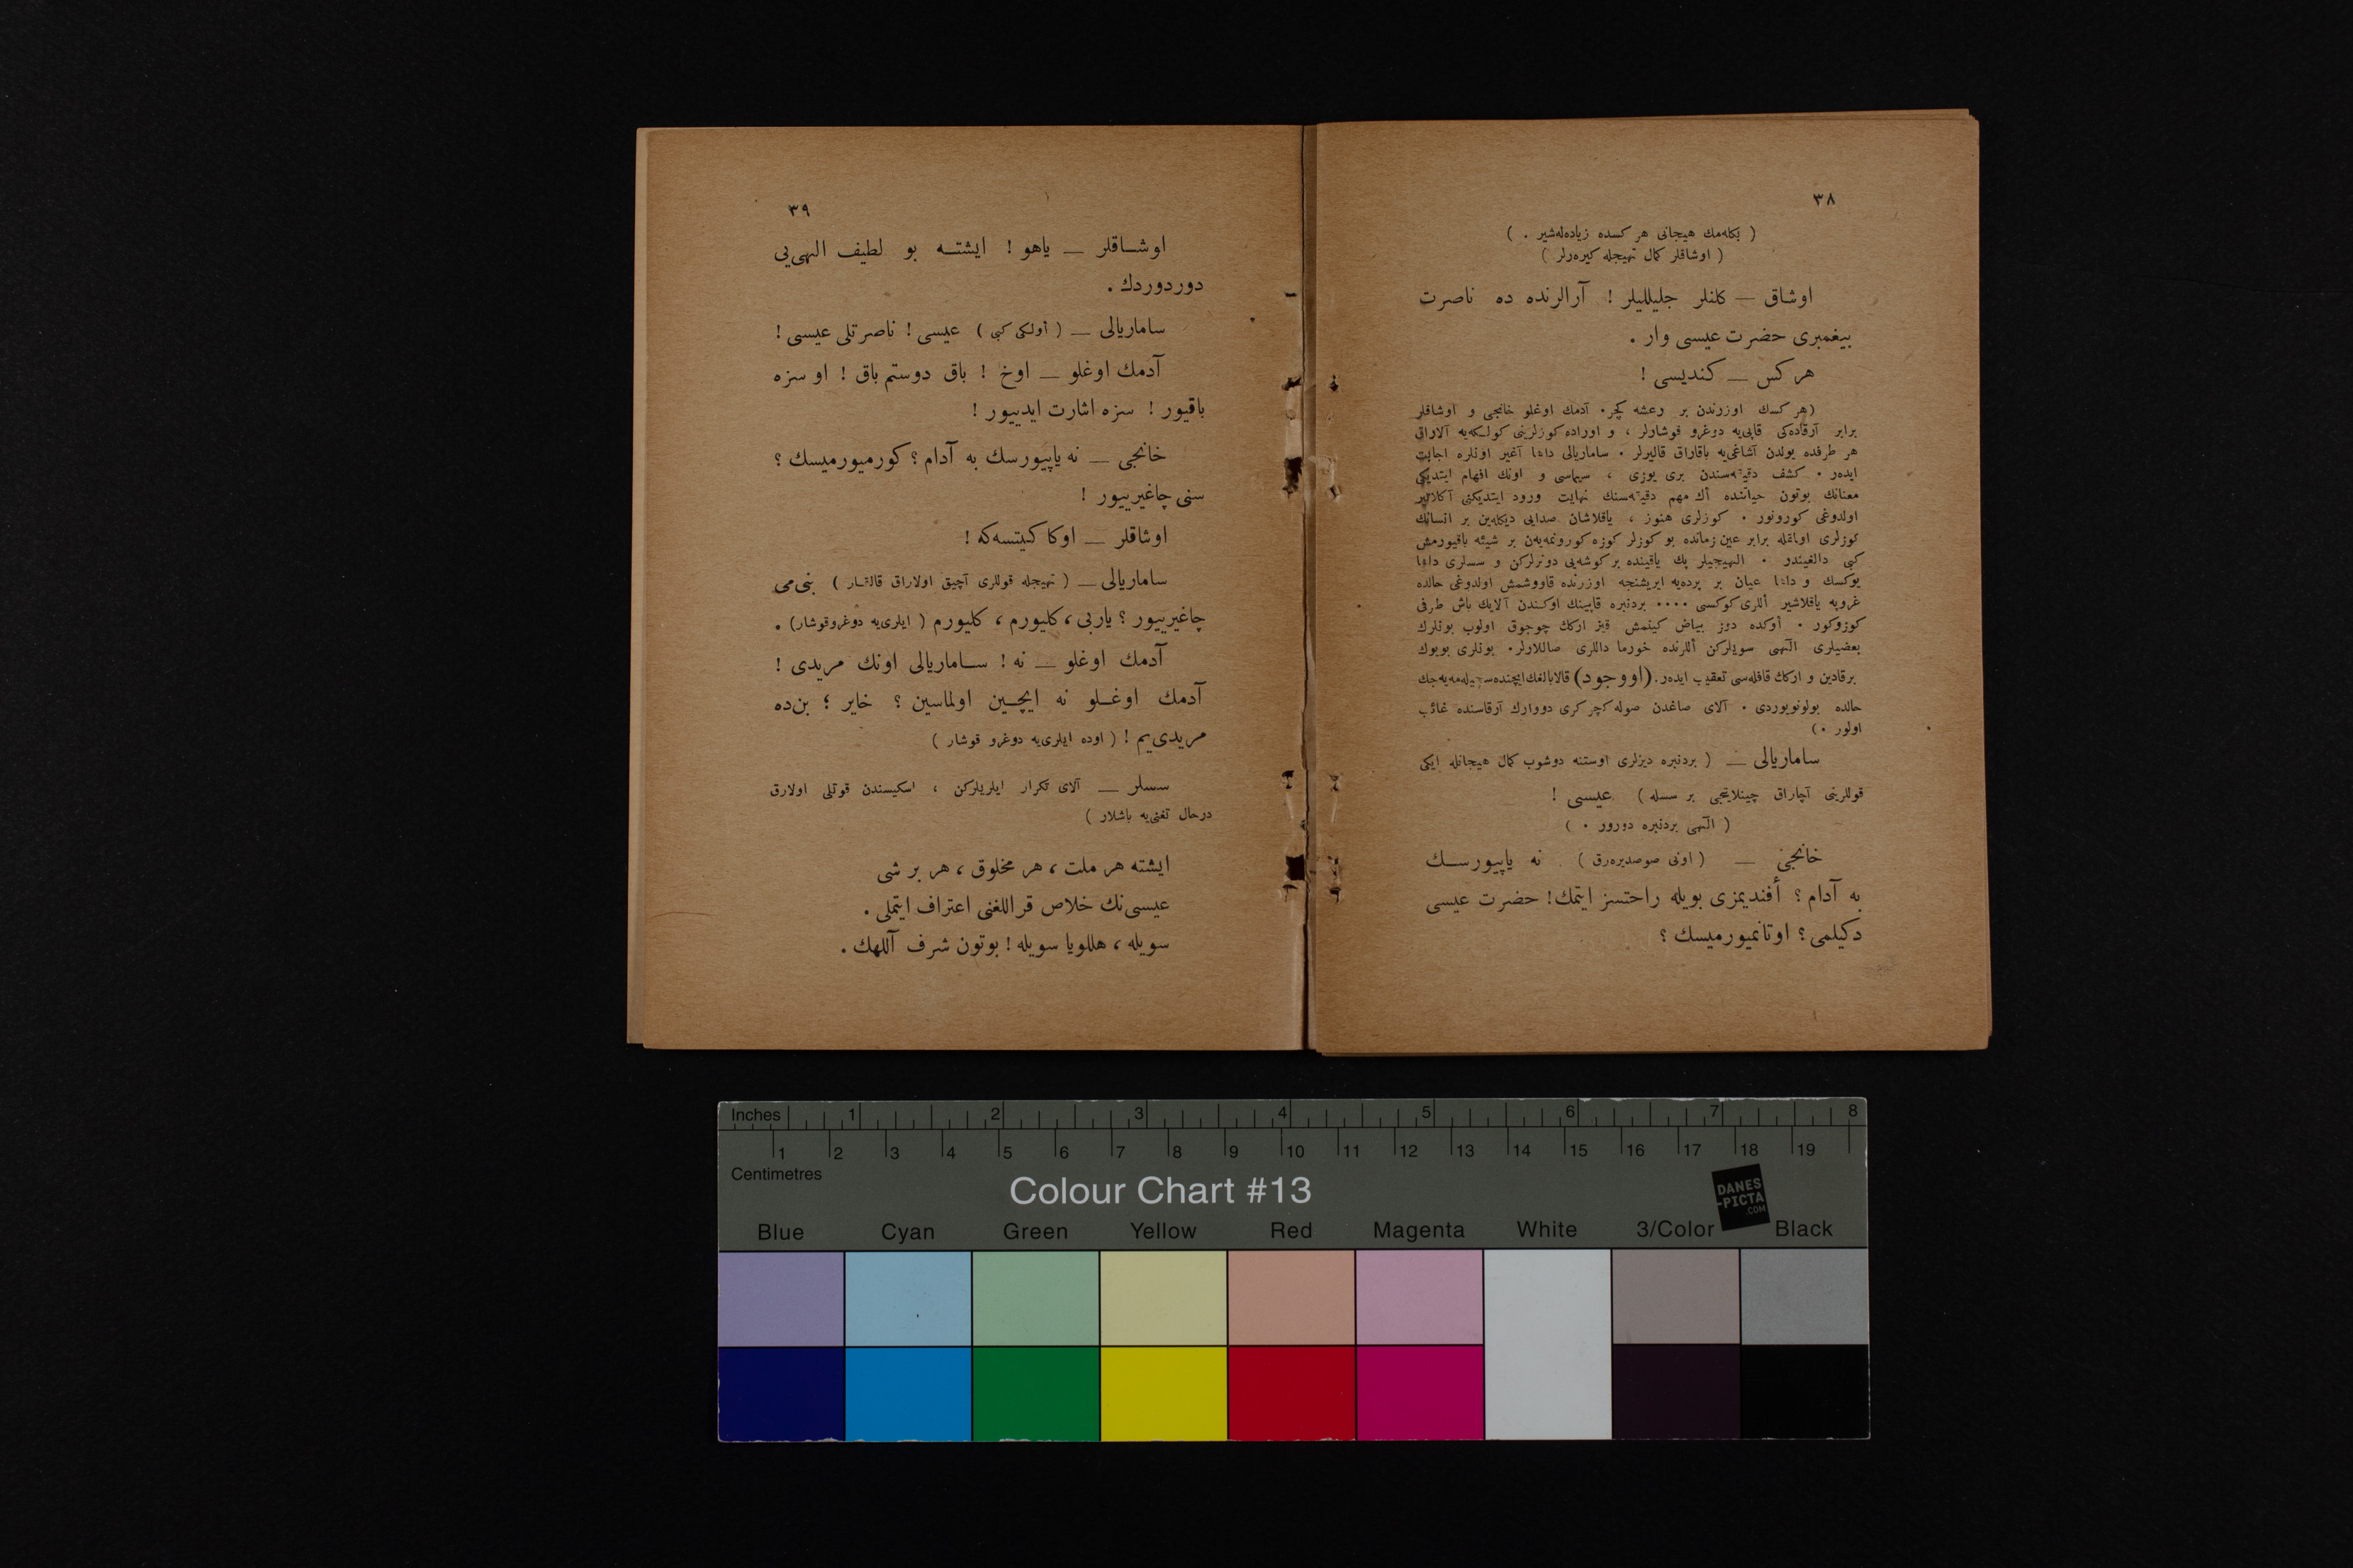 ٣٨
( بكله‌مك هیجانی هركسده زیاده‌لەشیر . )
( اوشاقلر كمال تهیجله كیره‌رلر )
اوشاق — كلنلر جلیللیلر ! آرالرنده ده ناصرت
پیغمبری حضرت عیسی وار .
هركس — كندیسی !
(هركسك اوزرندن بر رعشه كچر. آدمك اوغلو خانجی و اوشاقلر
برابر آرقاده‌كی قاپی‌یه دوغرو قوشارلر ، و اوراده كوزلرینی كولكه‌یه آلاراق
هر طرفده یولدن آشاغی‌یه باقاراق قالیرلر . ساماریالی دائما آغیر اونلره اجابت
ایدەر . كشف دقیقه‌سندن بری یوزی ، سیماسی و اونك افهام ایتدیكی
معنانك بوتون حیاتنده اك مهم دقیقه‌سنك نهایت ورود ایتدیكنی آكلاتیر
اولدوغی كورونور . كوزلری هنوز ، یاقلاشان صدایی دیكله‌ین بر انسانك
كوزلری اولمقله برابر عین زمانده بو كوزلر كوزه كورونمه‌یه‌ن بر شیئه باقیورمش
كبی دالغیندر . الهیجیلر پك یاقینده بر كوشه‌یی دونرلركن و سسلری دائما
یوكسك و دائما عیان بر پرده‌یه ایریشنجه اوزرنده قاووشمش اولدوغی حالده
غروپه یاقلاشیر أللری كوكسی .... بردنبره قاپینك اوكندن آلایك باش طرفی
كوزوكور . أوكده دوز بیاض كینمش قیز اركك چوجوق اولوب بونلرك
بعضیلری الٓهی سویلركن أللرنده خورما داللری صاللارلر. بونلری بویوك
برقادین و اركك قافله‌سی تعقیب ایدەر. (او وجود) قالابالغك ایچنده سچیله‌مه‌یه‌جك
حالده بولونویوردی . آلای صاغدن صوله كچر كری دووارك آرقاسنده غائب
اولور .)
ساماریالی — ( بردنبره دیزلری اوستنه دوشوب كمال هیجانله ایكی
قوللرینی آچاراق چینلاییجی بر سسله ) عیسی !
( الٓهی بردنبره دورور . )
خانجی — ( اونی صوصدیره‌رق ) نه یاپیورسـك
به آدام ؟ أفندیمزی بویله راحتسز ایتمك ! حضرت عیسی
دكیلمی ؟ اوتانمیورمیسك ؟
٣٩
اوشـاقلر — یاهو ! ایشتـه بو لطیف الهی‌یی
دوردوردك .
ساماریالی — ( أولكی كبی ) عیسی ! ناصرتلی عیسی !
آدمك اوغلو — اوخ ! باق دوستم باق ! او سزه
باقیور ! سزه اشارت ایدییور !
خانجی — نه یاپیورسك به آدام ؟ كورمیورمیسك ؟
سنی چاغیرییور !
اوشاقلر — اوكا كیتسه‌كه !
ساماریالی — ( تهیجله قوللری آچیق اولاراق قالقـار ) بنی‌می
چاغیرییور ؟ یاربی ، كلیورم ، كلیورم ( ایلری‌یه دوغروقوشار) .
آدمك اوغلو — نه ! سـاماریالی اونك مریدی !
آدمك اوغـلو نه ایچـین اولماسین ؟ خایر ؛ بن‌ده
مریدی‌یم ! ( اوده ایلری‌یه دوغرو قوشار )
سسلر — آلای تكرار ایلریلركن ، اسكیسندن قوتلی اولارق
درحال تغنی‌یه باشلار )
ایشته هر ملت ، هر مخلوق ، هر بر شی
عیسی‌نك خلاص قراللغنی اعتراف ایتملی .
سویله ، هللویا سویله ! بوتون شرف آللهك .
Inches 1 2 3 4 5 6 7 8
1 2 3 4 5 6 7 8 9 10 11 12 13 14 15 16 17 18 19
Centimetres
Colour Chart #13
DANES
-PICTA
.COM
Blue Cyan Green Yellow Red Magenta White 3/Color Black